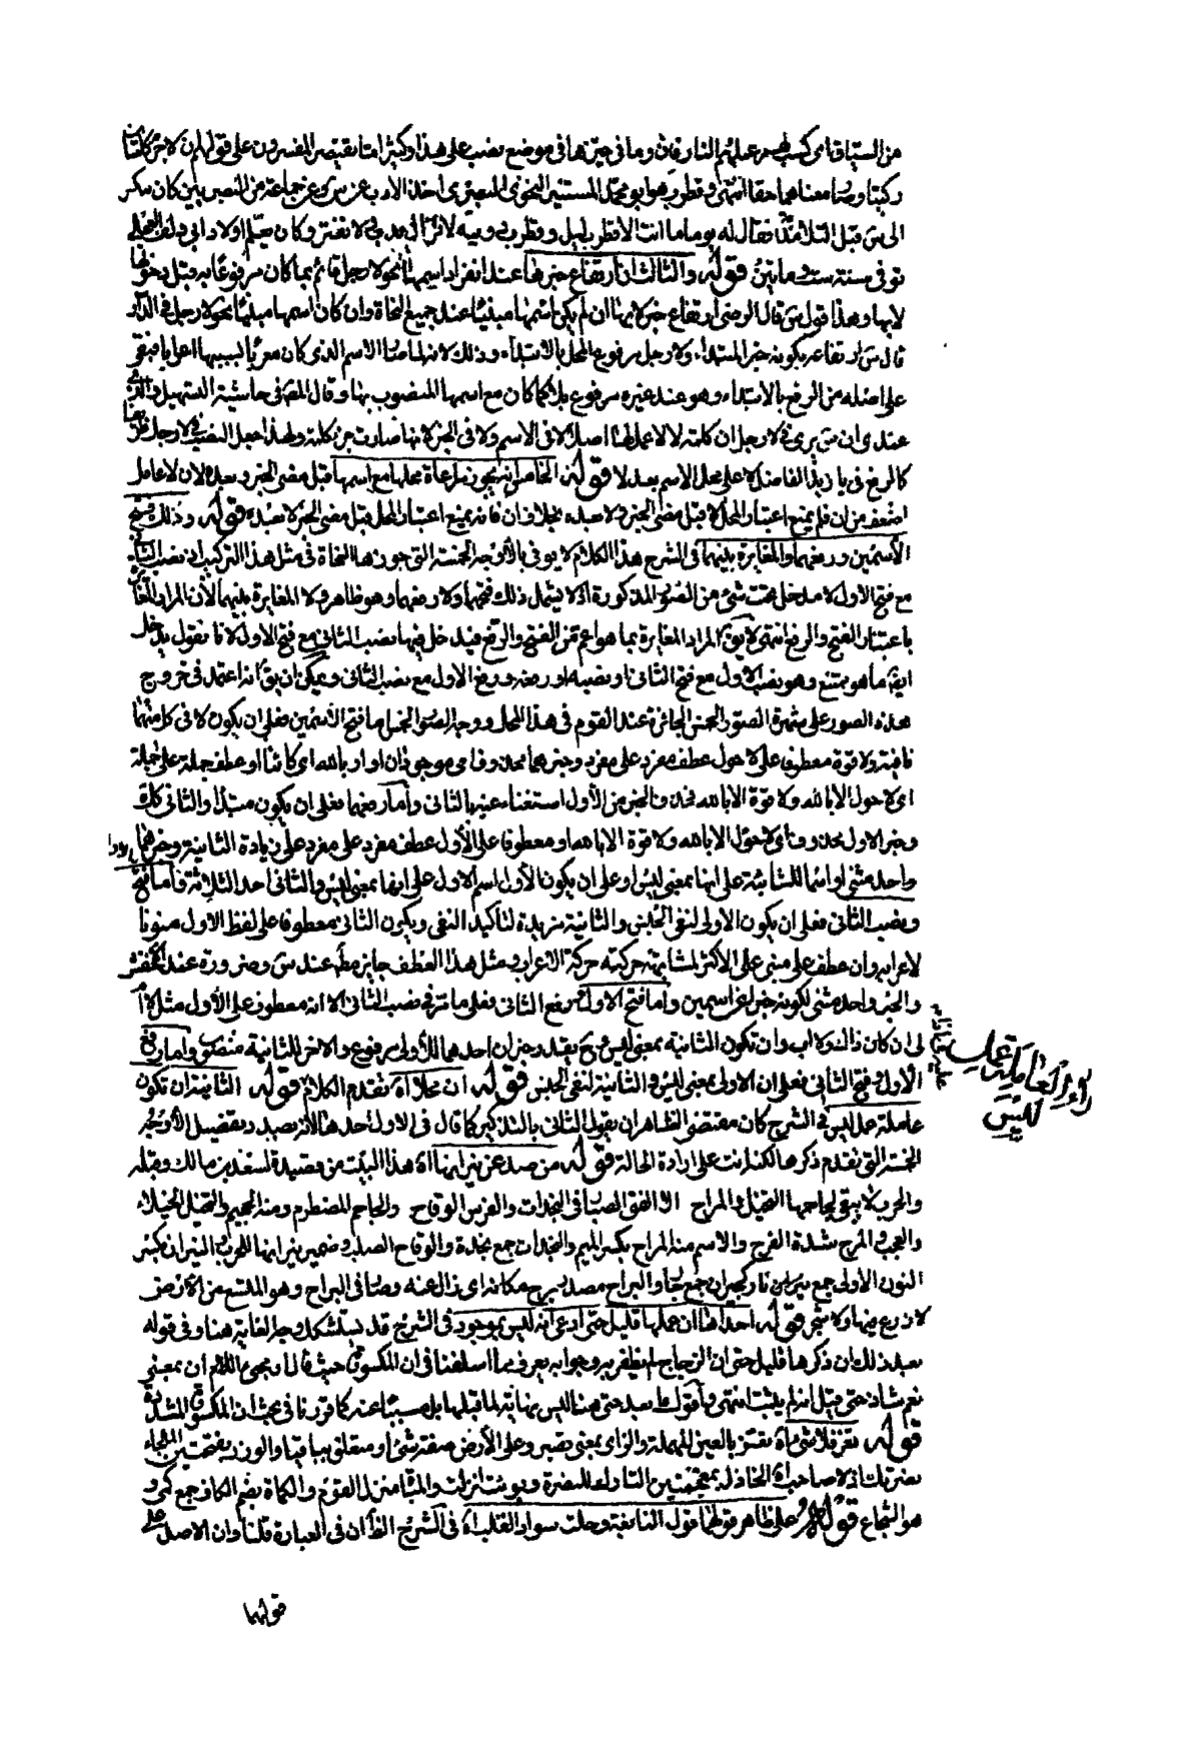 من السياق اى كسب لهم عملهم النار فان وما فى حيزها فى موضع نصب على هذا وكثيرا ما يقتصر المفسرون على قولهم ان لا جرم كلمتان
ركبتا وصار معناهما حقا انتهى وقطرب هو ابو محمد المستنير النحوى البصرى اخذ الادب عن س وعن جماعة من البصريين كان يبكر
الى س قبل التلامذة فقال له يوما ما انت الا قطرب ليل وقطرب دويبة لا تزال تدب ولا تفتر وكان معلم اولاد ابى دلف العجلى
توفى سنة ست ومأتين قوله والثالث ان ارتفاع خبرها عند افراد اسمها نحو لا رجل قائم بما كان مرفوعا به قبل دخولها
لا بها وهذا قول س قال الرضى ارتفاع خبر لا بها ان لم يكن اسمها مبنيا عند جميع النحاة وان كان اسمها مبنيا نحو لا رجل فى الدار
قال س ارتفاعه بكونه خبر المبتداء ولا رجل مرفوع المحل بالابتداء وذلك لانها صار الاسم الذى كان معربا بسببها مبنيا فبقى
على اصله من الرفع بالابتداء وهو عند غيره مرفوع بلا كما كان مع اسمها المنصوب بها وقال المص فى حاشية التسهيل والذى
عندى ان س يرى فى لا رجل ان كلمة لا لا عمل لها اصلا لا فى الاسم ولا فى الخبر لانها صارت جزء كلمة ولهذا جعل النصب فى لا رجل ظريفا
كالرفع فى يا زيد الفاضل لا على محل الاسم بعد لا قوله الخامس انه يجوز مراعاة محلها مع اسمها قبل مضى الخبر وبعده لان لا عامل
اضعف من ان فلم يمنع اعتبار المحل لا قبل مضى الخبر ولا بعده بخلاف ان فانه يمنع اعتبار المحل قبل مضى الخبر لا بعده قوله وذلك بفتح
الاسمين ورفعهما والمغايرة بينهما فى الشرح هذا الكلام لا يوفى بالاوجه الخمسة التى جوزها النحاة فى مثل هذا التركيب اذ نصب الثانى
مع فتح الاول لا مدخل تحت شئ من الصور المذكورة اذ لا يشمل ذلك فتحهما ولا رفعهما وهو ظاهر ولا المغايرة بينهما لان المراد المغايرة
باعتبار الفتح والرفع انتهى لا يق المراد المغايرة بما هو اعم من الفتح والرفع فيدخل فيها نصب الثانى مع فتح الاول لانا نقول يدخل
ايضا ما هو ممتنع وهو نصب الاول مع فتح الثانى او نصبه او رفعه ورفع الاول مع نصب الثانى ويمكن ان يق انه اعتمد فى خروج
هذه الصور على شهرة الصور الخمس الجائزة عند القوم فى هذا المحل ووجه الصور الخمس اما فتح الاسمين فعلى ان يكون لا فى كل منهما
نافية ولا قوة معطوف على لا حول عطف مفرد على مفرد وخبرهما محذوف اى موجودان او بالله اى كائنا او عطف جملة على جملة
اى لا حول الا بالله ولا قوة الا بالله فحذف الخبر من الاول استغناء عنه بالثانى واما رفعهما فعلى ان يكون مبتدأ والثانى كذلك
وخبر الاول محذوف اى لا حول الا بالله ولا قوة الا بالله او معطوفا على الاول عطف مفرد على مفرد على زيادة الثانية وخبرهما
واحد مثنى او اسما للثانية على انها بمعنى ليس او على ان يكون الاول اسم الاول على انها بمعنى ليس والثانى احد الثلاثة واما فتح
ونصب الثانى فعلى ان يكون الاولى لنفى الجنس والثانية مزيدة لتاكيد النفى ويكون الثانى معطوفا على لفظ الاول منونا
لاعرابه وان عطف على مبنى على الاكثر لمشابهة حركته حركة الاعراب ومثل هذا العطف جايز مط عند س وضرورة عند الاخفش
والخبر واحد مثنى لكونه خبرا عن اسمين واما فتح الاول ورفع الثانى فعلى ما مر فى نصب الثانى الا انه معطوف على الاول مثل لا ام
لى ان كان ذاك ولا اب وان تكون الثانية بمعنى ليس وح يقدر خبران احدهما للاولى مرفوع والاخر للثانية منصوب واما رفع
الاول وفتح الثانى فعلى ان الاولى بمعنى ليس والثانية لنفى الجنس قوله ان محلا اه تقدم الكلام قوله الثانية ان تكون
عاملة عمل ليس فى الشرح كان مقتضى الظاهر ان يقول الثانى بالتذكير كما قال فى الاول احدها لانه بصدد تفصيل الاوجه
الخمسة التى تقدم ذكرها لكنه انث على ارادة الحالة قوله من صد عن نيرانها اه هذا البيت من قصيدة لسعد بن مالك وقبله
والحرب لا يبقى لجاحمها التخيل والمراح الا الفتى الصبار فى النجدات والفرس الوقاح والجاحم المضطرم ومنه الجحيم والتخيل الخيلاء
والعجب والمرح شدة الفرح والاسم منه المراح بكسر الميم والنجدات جمع نجدة والوقاح الصلب وضمير نيرانها للحرب النيران بكسر
النون الاولى جمع نار كجيران جمع جار والبراح مصدر برح مكانه اى زال عنه وصار فى البراح وهو المتسع من الارض
لا زرع فيها ولا شجر قوله احدها ان عملها قليل حتى ادعى انه ليس بموجود فى الشرح قد يستشكل جعل الغاية هنا وفى قوله
بعد ذلك ان ذكرها قليل حتى ان الزجاج لم يظفر به وجوابه يعرف مما اسلفنا فى ان المكسورة حيث قال ومجئ اللام ان بمعنى
نعم شاذ حتى قيل انه لم يثبت انتهى واقول ما بعد حتى هنا ليس نهاية لما قبلها بل مسببا عنه كما قررنا فى بحث ان المكسورة المشددة
قوله تعز فلا شئ اه تعز بالعين المهملة والزاى بمعنى تصبر وعلى الارض صفة شئ او متعلق بباقيا والوزر بفتحتين الملجاء
نصرتك اذ لا صاحب اه الخاذل بمعجمتين التارك للنصرة وبوئت انزلت والمبوأ منزل القوم والكماة بضم الكاف جمع كمى و
هو الشجاع قوله وعلى ظاهر قولهما قول النابغة وحلت سواد القلب اه فى الشرح الظ ان فى العبارة قلبا وان الاصل على
قولهما